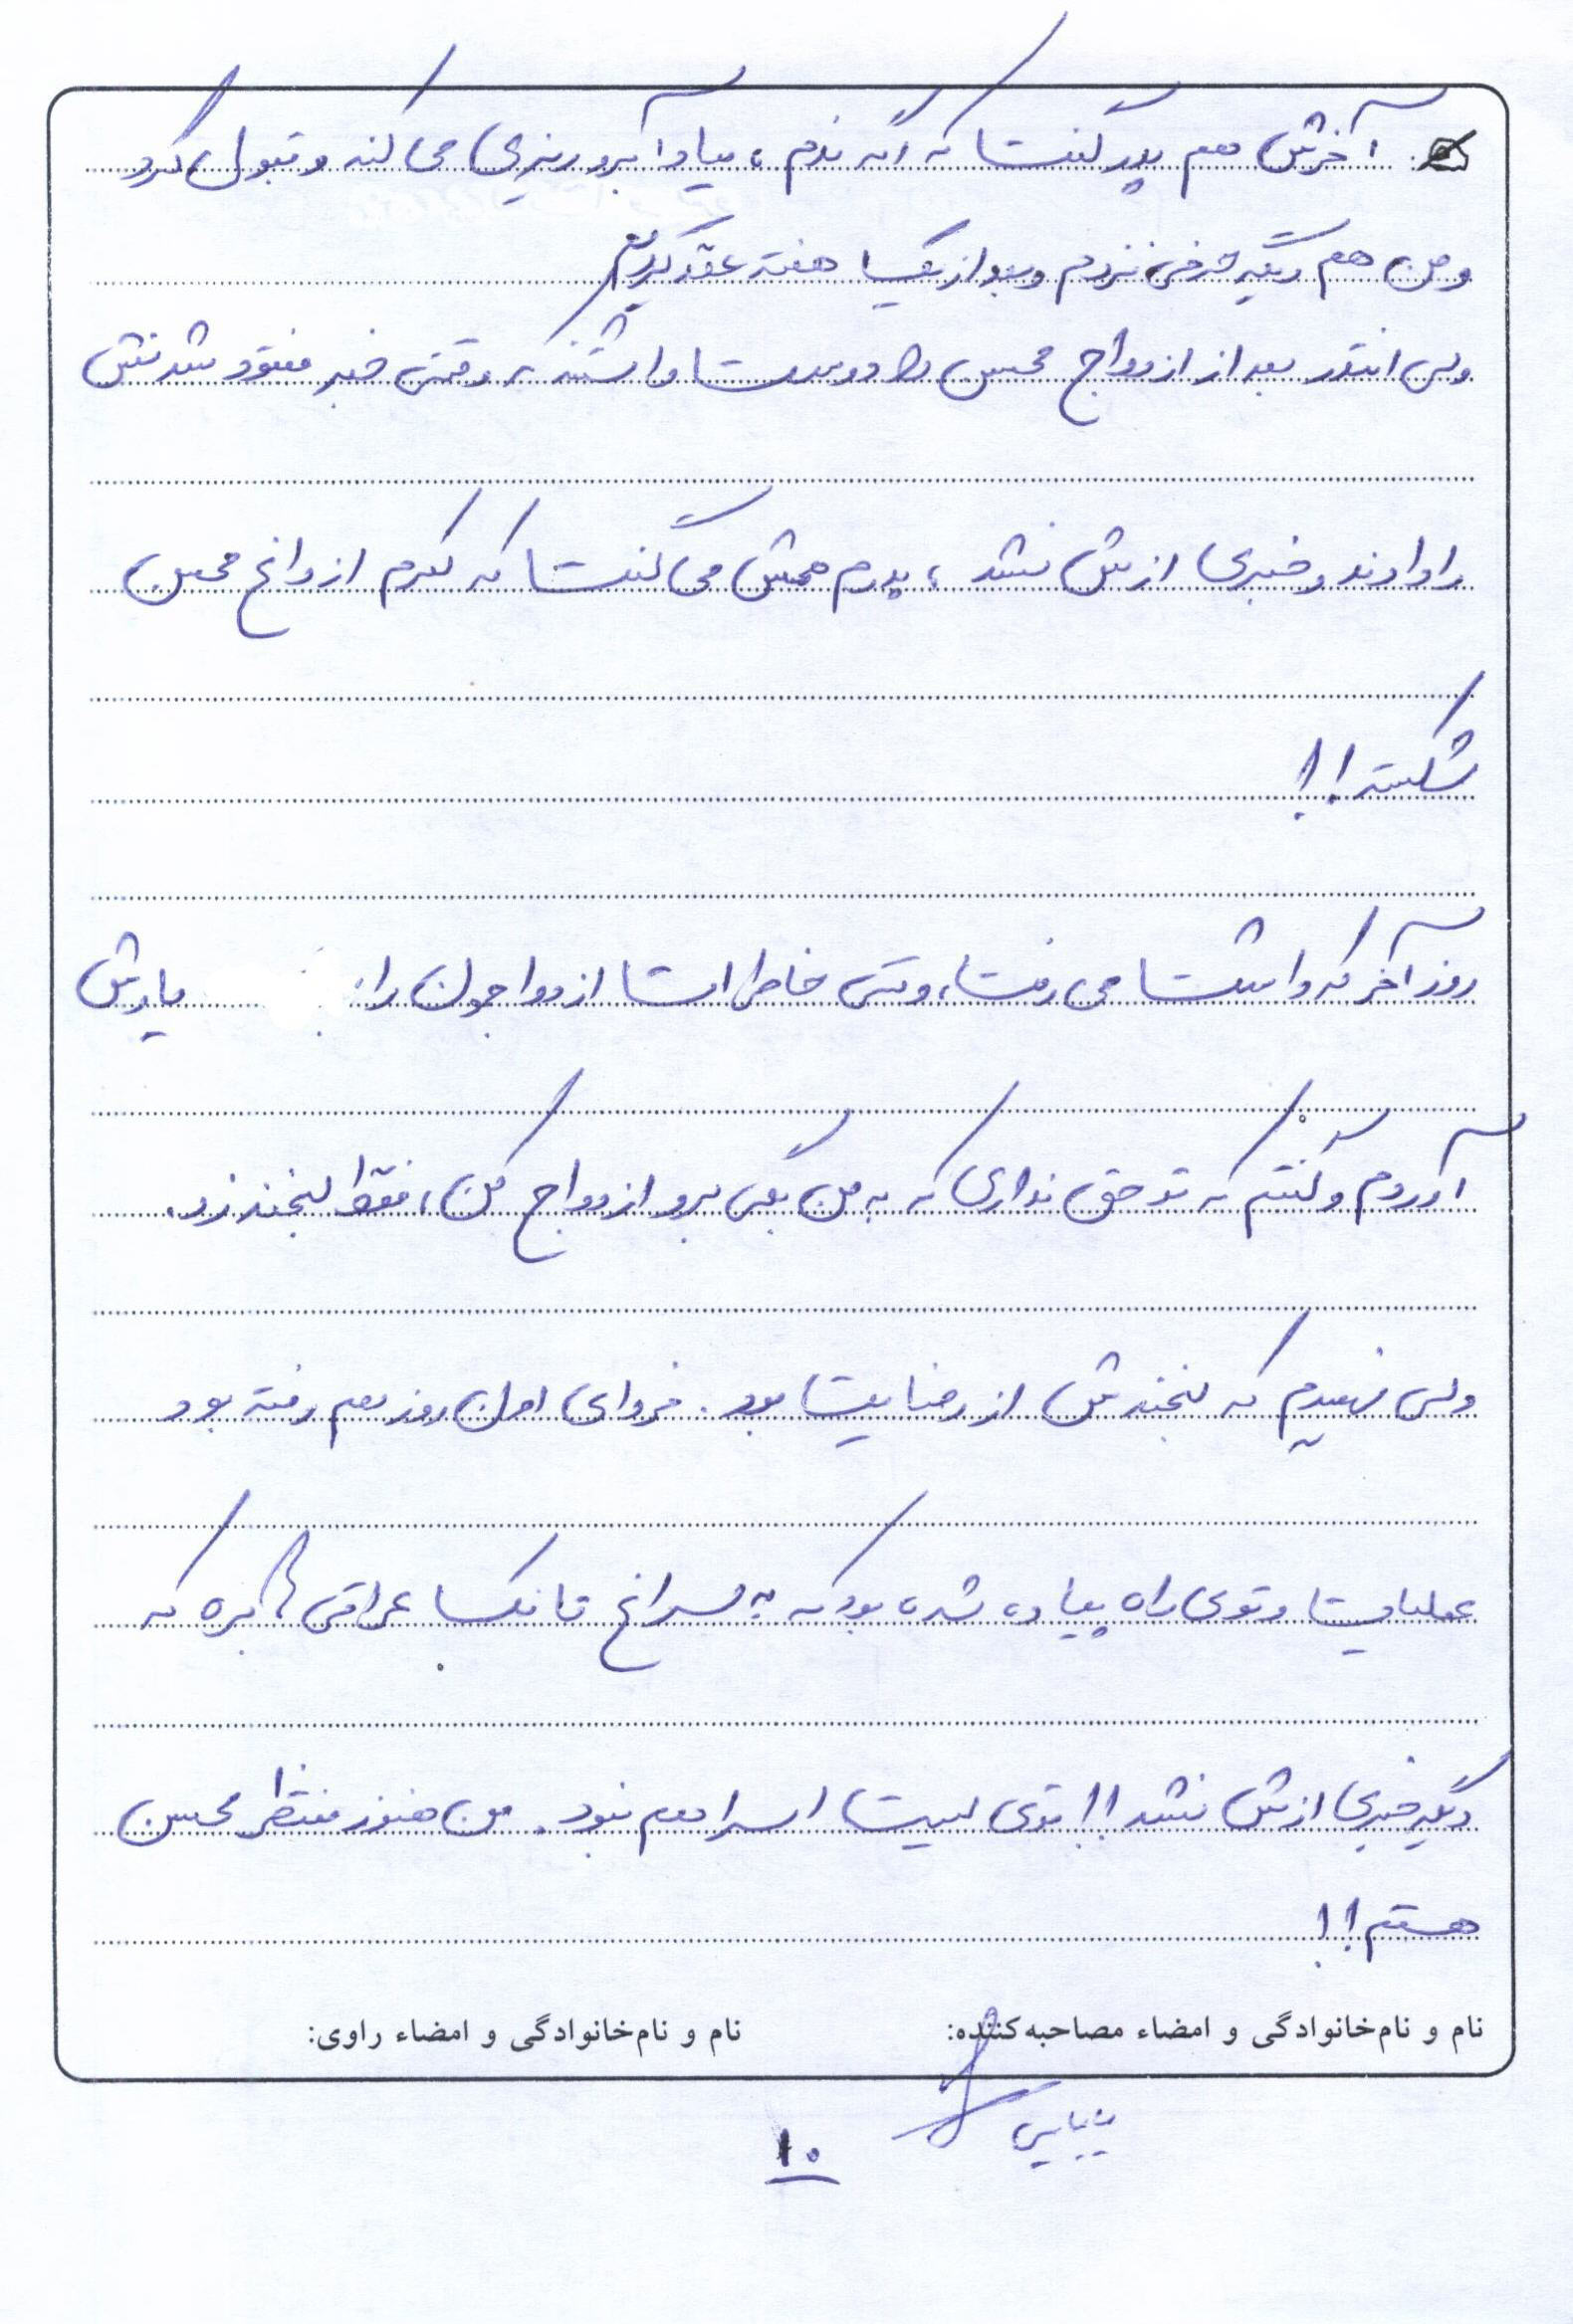 آخرش هم پدر گفت که اگه ندم، میاد آبروریزی می کنه و قبول کرد
و من هم دیگه حرفی نزدم و بعد از یک هفته عقد کردیم
ولی انقدر بعد از ازدواج محسن را دوست داشتند که وقتی خبر مفقود شدنش
را دادند و خبری ازش نشد، پدرم همش می گفت که کمرم از داغ محسن
شکسته!!
روز آخر که داشت می رفت، وقتی خاطرات ازدواجمون را یادش
آوردم و گفتم که تو حق نداری که به من بگی برو ازدواج کن، فقط لبخند زد.
ولی فهمیدم که لبخندش از رضایت بود. فردای اون روز هم رفته بود
عملیات و توی راه پیاده شده بود که به سراغ تانک عراقی ها بره که
دیگه خبری ازش نشد!! توی لیست اسرا هم نبود. من هنوز منتظر محسن
هستم!!
نام و نام‌خانوادگی و امضاء مصاحبه‌کننده:
نام و نام‌خانوادگی و امضاء راوی:
۱۰